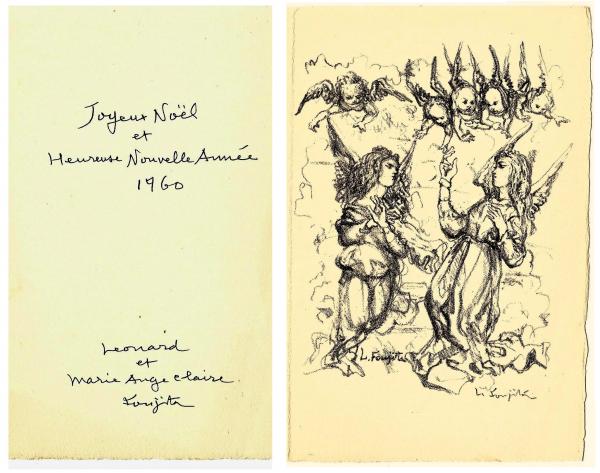 Joyeux Noël
et
Heureuse Nouvelle Année
1960
Leonard
et
Marie Ange Claire
Foujita
L. Foujita
L. Foujita